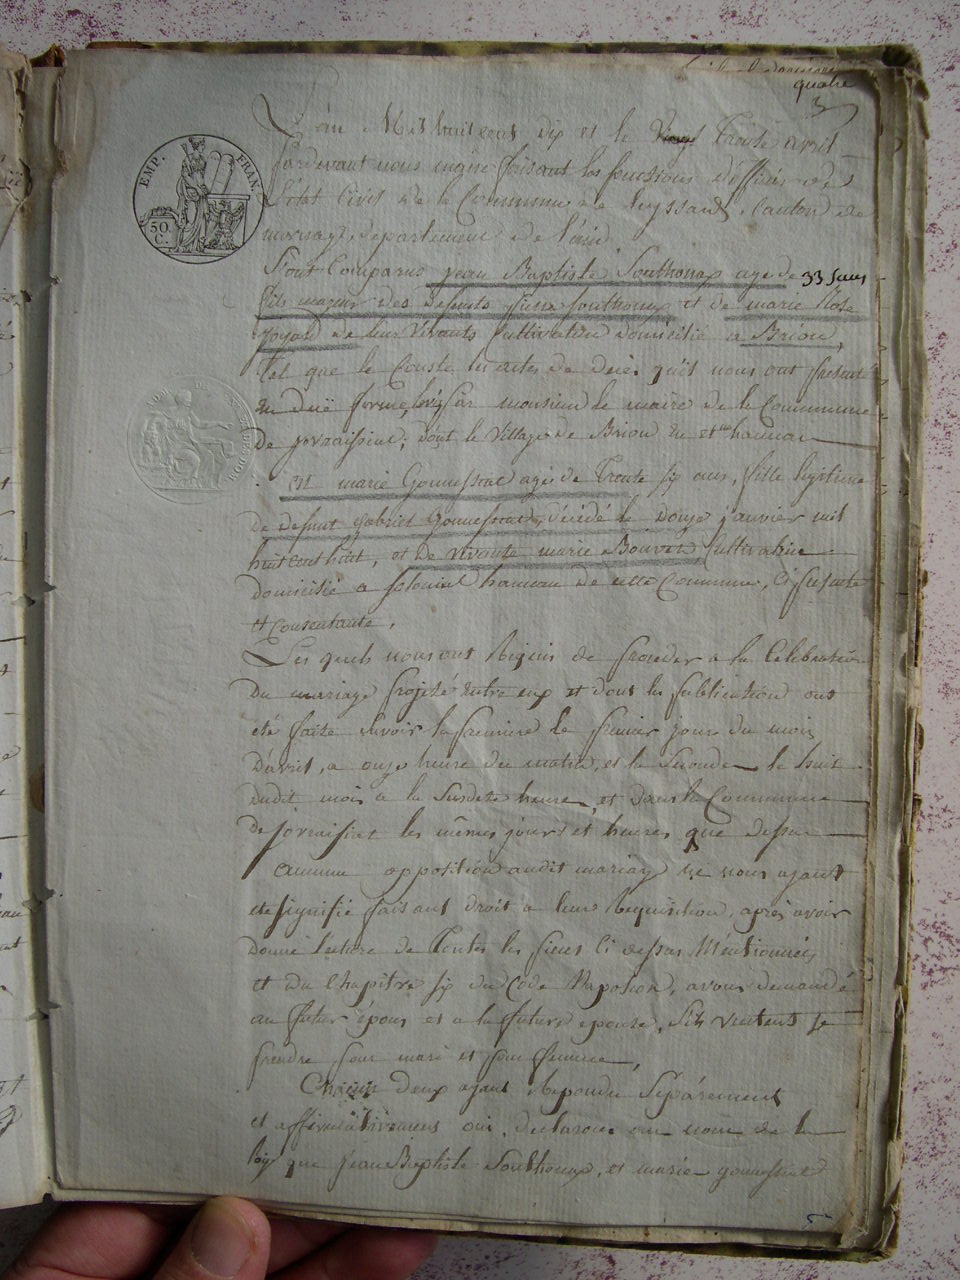 quatre
3
EMP. FRAN.
50 C.
L'an Mil huit cent dix et le trente avril
Pardevant nous maire faisant les fonctions d'officier de
l'état Civil de la Commune de Leyssard, Canton de
departement de l'ain.
Sont Comparus jean Baptiste Southonax age de 33 ans
fils majeur des defunts Southonax et de marie Rose
Joyard de leur Vivants Cultivateur domicilié a Briou,
tel que le Conste les actes de decès qu'il nous ont presenté
en duë forme par monsieur le maire de la Commune
De dont le Village de Briou en est un hameau
Et marie Gonnessiat agée de Trente six ans, fille legitime
de defunt gabriel Gonnessiat, décédé le douze janvier mil
huit cent huit, et De vivante marie Bouvet Cultivatrice
domiciliée a Solomiat hameau de cette Commune, Ci presente
et Consentante,
Les quels nous ont Requis de proceder a la Célébration
Du mariage projeté entre eux et dont les publications ont
été faite savoir la premiere le premier jour du mois
D'avril, a onze heure du matin, et la Seconde le huit
dudit mois a la Susdite heure, et dans la Commune
De les mêmes jours et heures que dessus
aucune opposition audit mariage ne nous ayant
eté signifié faisant droit a leur requisition, après avoir
donné lecture de Toutes les pieces Ci dessus Mentionnées
et du Chapitre six du Code Napoleon, avons demandé
au futur époux et a la future epouse, S'ils veulent se
prendre pour mari et pour femme,
Chacun deux ayant Repondu Séparement
et affirmativement oui, declarons au nom de la
loix que Jean Baptiste Southonax, et marie gonnessiat
5